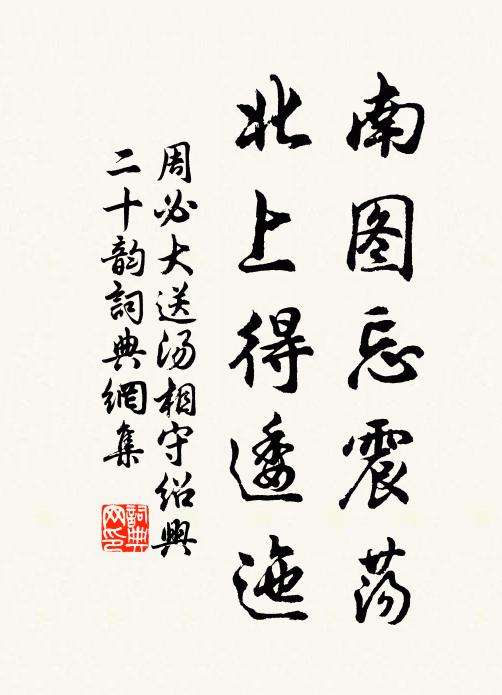 南图忘震荡
北上得逶迤
周必大送汤相守绍興
二十韵詞典網集
詞典網印